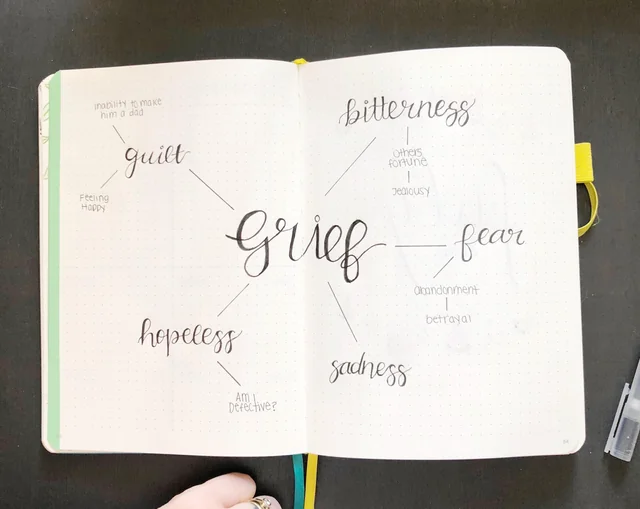 inability to make
him a dad
guilt
Feeling
Happy
bitterness
others
fortune
Jealousy
Grief
fear
abandonment
betrayal
hopeless
Am I
Defective?
sadness